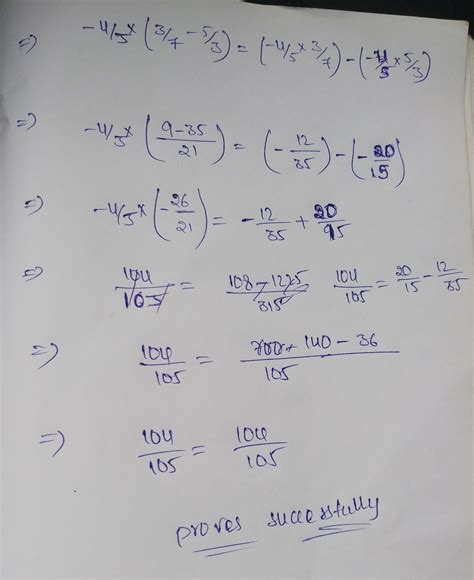 ⇒ -4/5 × (3/7 - 5/3) = (-4/5 × 3/7) - (-4/5 × 5/3)
⇒ -4/5 × (9-35/21) = (-12/35) - (-20/15)
⇒ -4/5 × (-26/21) = -12/35 + 20/15
⇒ 104/105 = 108-1225/315 104/105 = 20/15 - 12/35
⇒ 104/105 = 140 - 36/105
⇒ 104/105 = 104/105
proves successfully